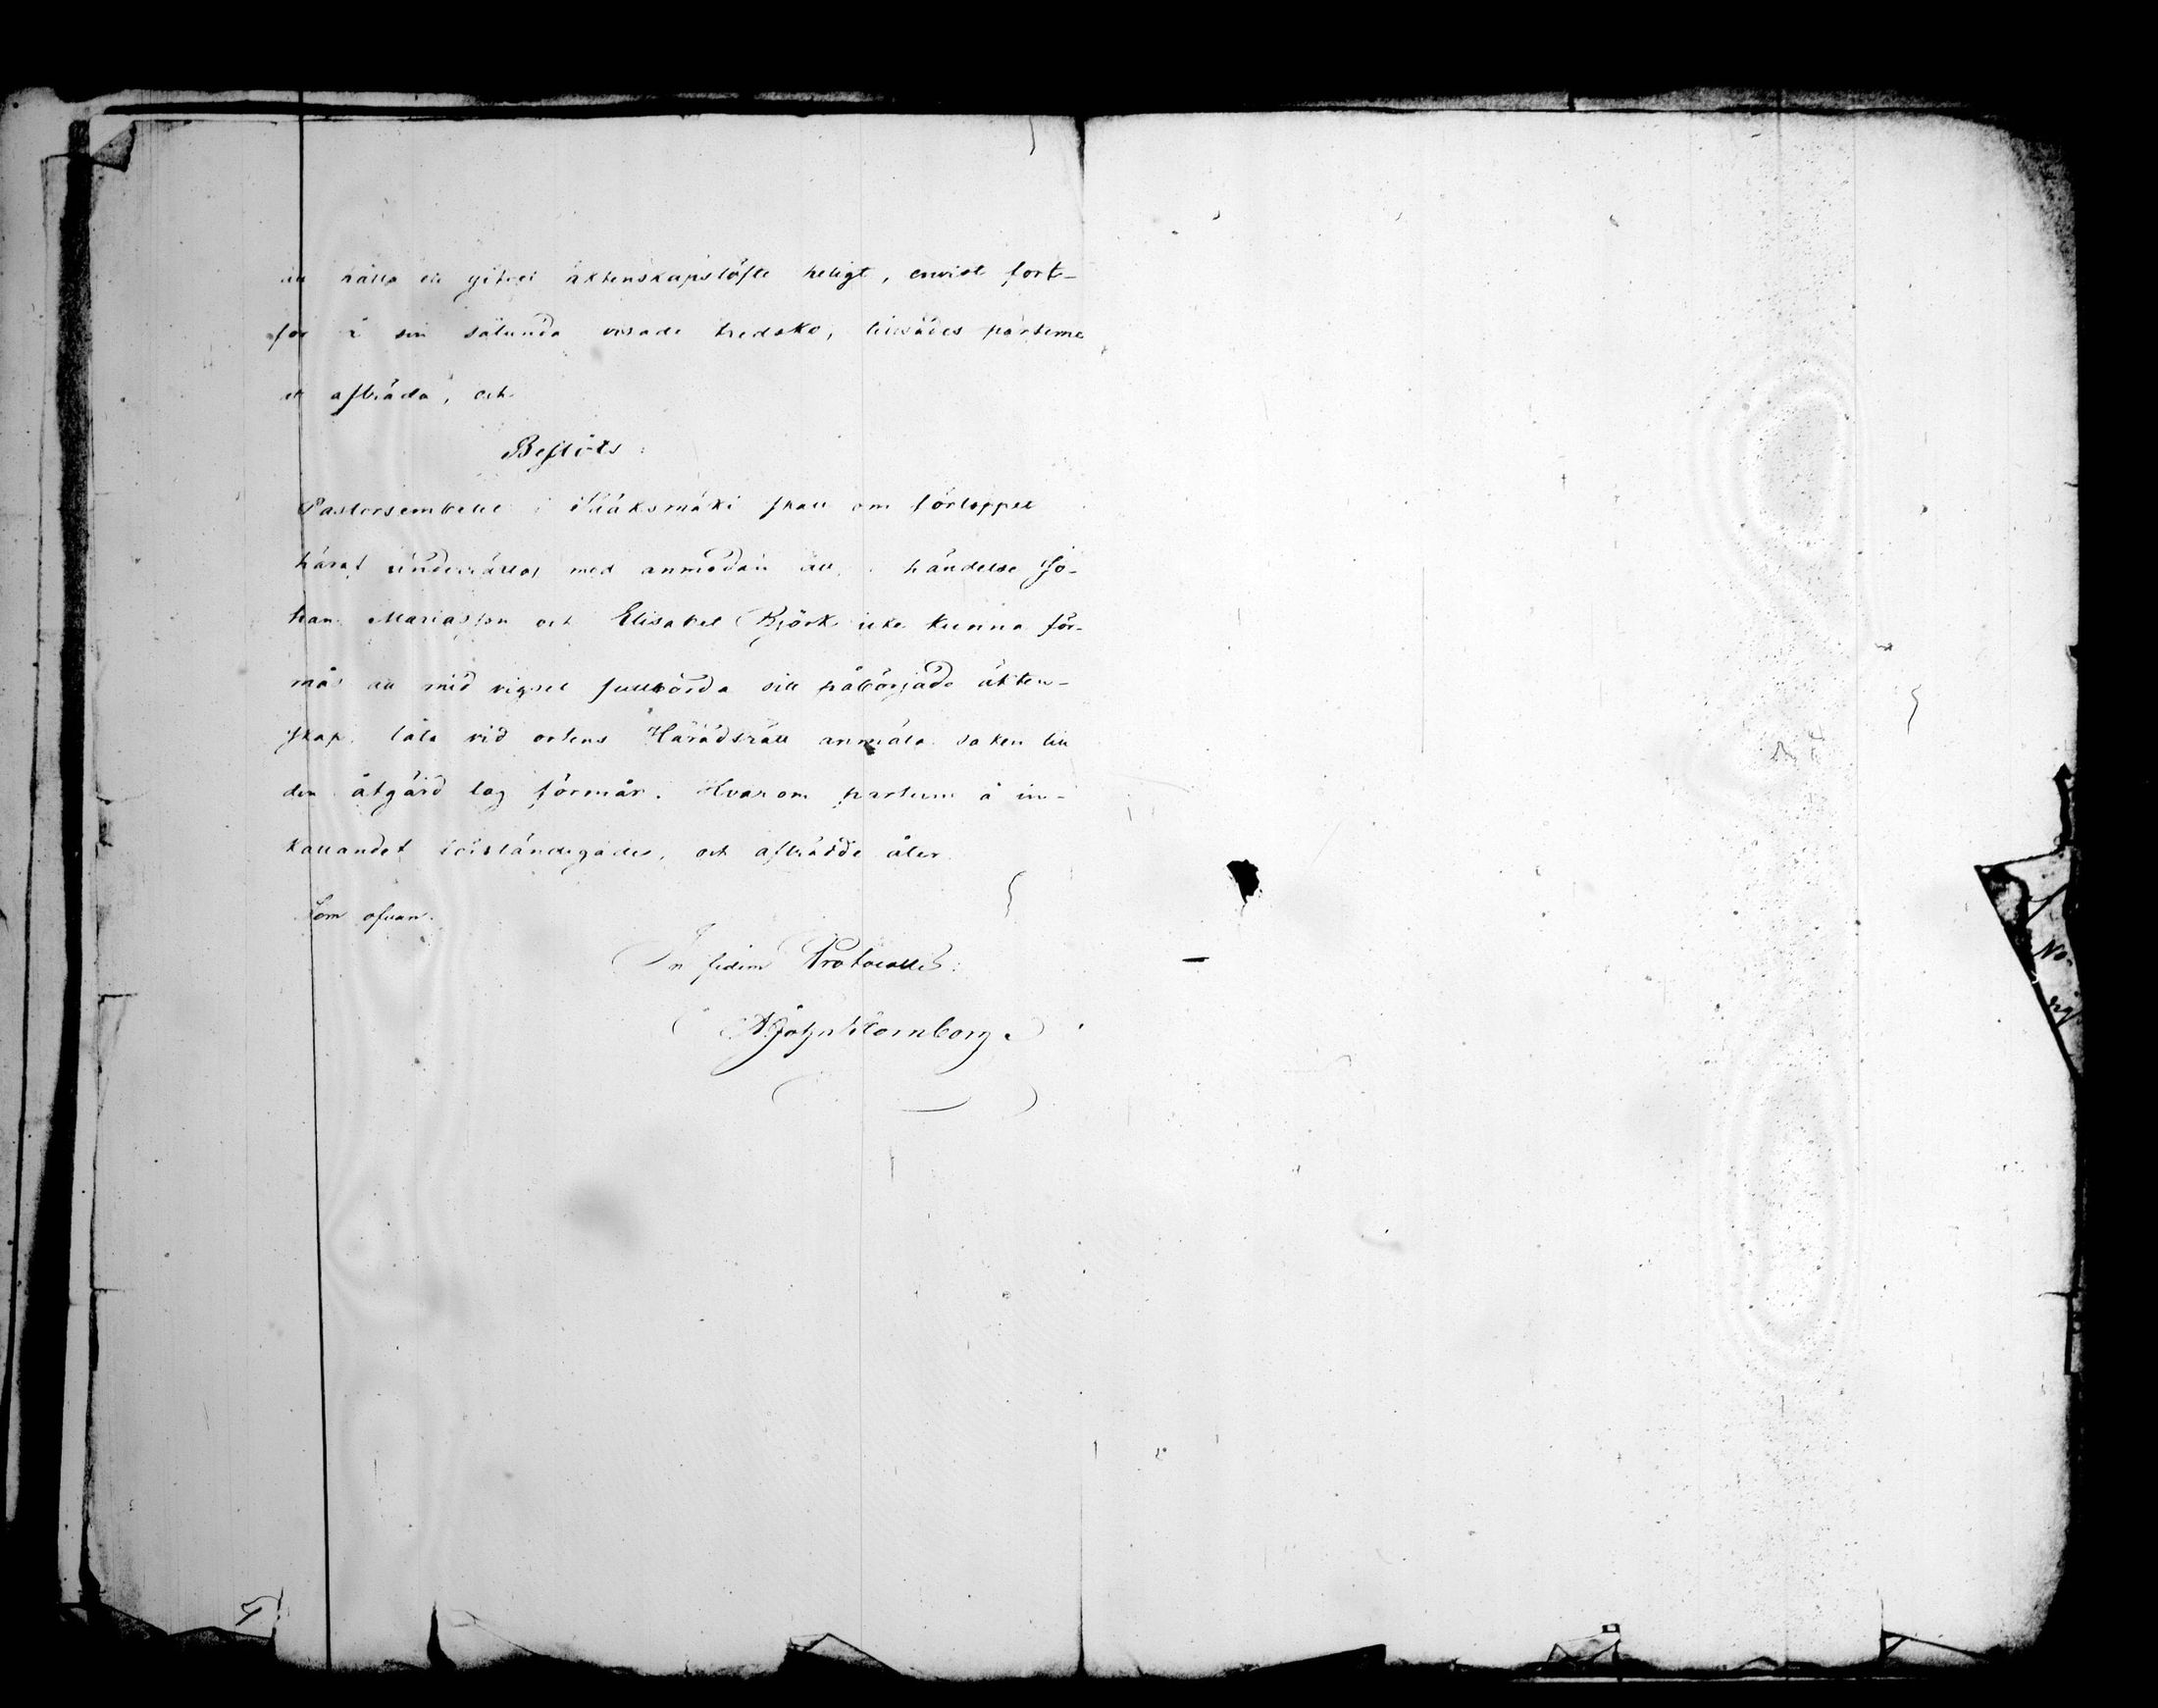 att hålla ett gifvet äktenskapslöfte heligt, envist fort-
for i sin sålunda visade tredsko, tillsades parterne
att afträda, och
Beslöts:
Pastorsembetet i Sääksmäki skall om förloppet
häraf underrättas med anmodan att i händelse Jo-
han Mariasson och Elisabet Björk icke kunna för-
mås att med vigsel fullborda sitt påbörjade äkten-
skap, låta vid ortens Häradsrätt anmäla saken till
den åtgärd lag förmår. Hvarom parterne å in-
kallandet förständigades, och afträdde åter
Som ofvan.
In fidem Protocolli:
Hornborg
No